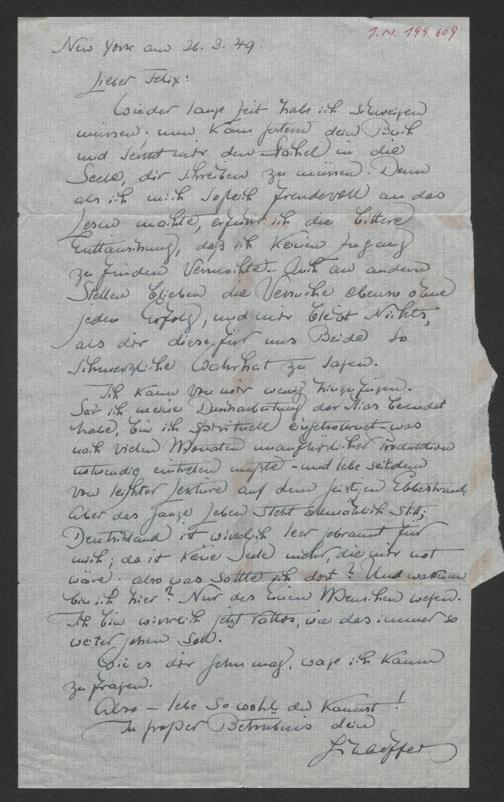 J.N. 199.609
New York am 26.3.49.
Lieber Felix:
Wieder lange Zeit habe ich schweigen
müssen; nun kam gestern dein Buch
und senkt mir den Stachel in die
Seele, dir schreiben zu müssen. Denn
als ich mich sogleich freudevoll an das
Lesen machte, erfuhr ich die bittere
Enttäuschung, daß ich keinen Zugang
zu finden vermochte. Auch an andern
Stellen blieben die Versuche ebenso ohne
jeden Erfolg, und mir bleibt Nichts,
als dir diese für uns Beide so
schmerzliche Wahrheit zu sagen.
Ich kann von mir wenig hinzufügen.
Seit ich meine Durcharbeitung der Ilias beendet
habe, bin ich spirituell eingetrocknet – was
nach vielen Monaten unaufhörlicher Produktion
notwendig eintreten mußte – und lebe seitdem
von leichter Lektüre auf dem geistigen Ebbestrand.
Aber das ganze Leben steht allmählich still;
Deutschland ist wirklich leer gebrannt für
mich; da ist keine Seele mehr, die mir not
wäre. also was sollte ich dort? Und warum
bin ich hier? Nur des einen Menschen wegen.
Ich bin wirklich jetzt ratlos, wie das immer so
weiter gehen soll.
Wie es dir gehn mag, wage ich kaum
zu fragen.
Also – lebe so wohl du kannst!
In großer Betrübnis dein
Schaeffer